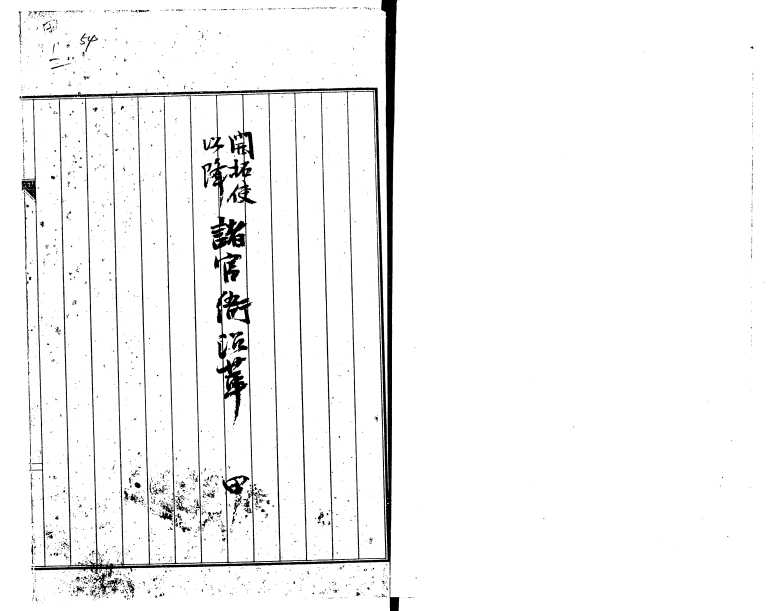 54
開拓使
以降
諸官衙沿革 四